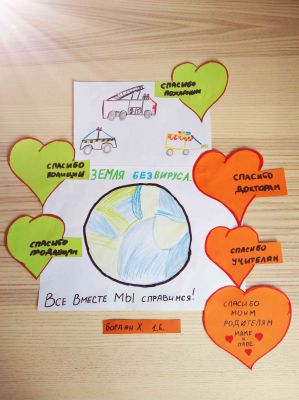 СПАСИБО
ПОЖАРНЫМ
СПАСИБО
ПОЛИЦИИ
ЗЕМЛЯ БЕЗ ВИРУСА.
СПАСИБО
ДОКТОРАМ
СПАСИБО
ПРОДАВЦАМ
СПАСИБО
УЧИТЕЛЯМ
ВСЕ ВМЕСТЕ МЫ СПРАВИМСЯ!
СПАСИБО
МОИМ
РОДИТЕЛЯМ
МАМЕ
И
ПАПЕ
БОГДАН Х 1Б.